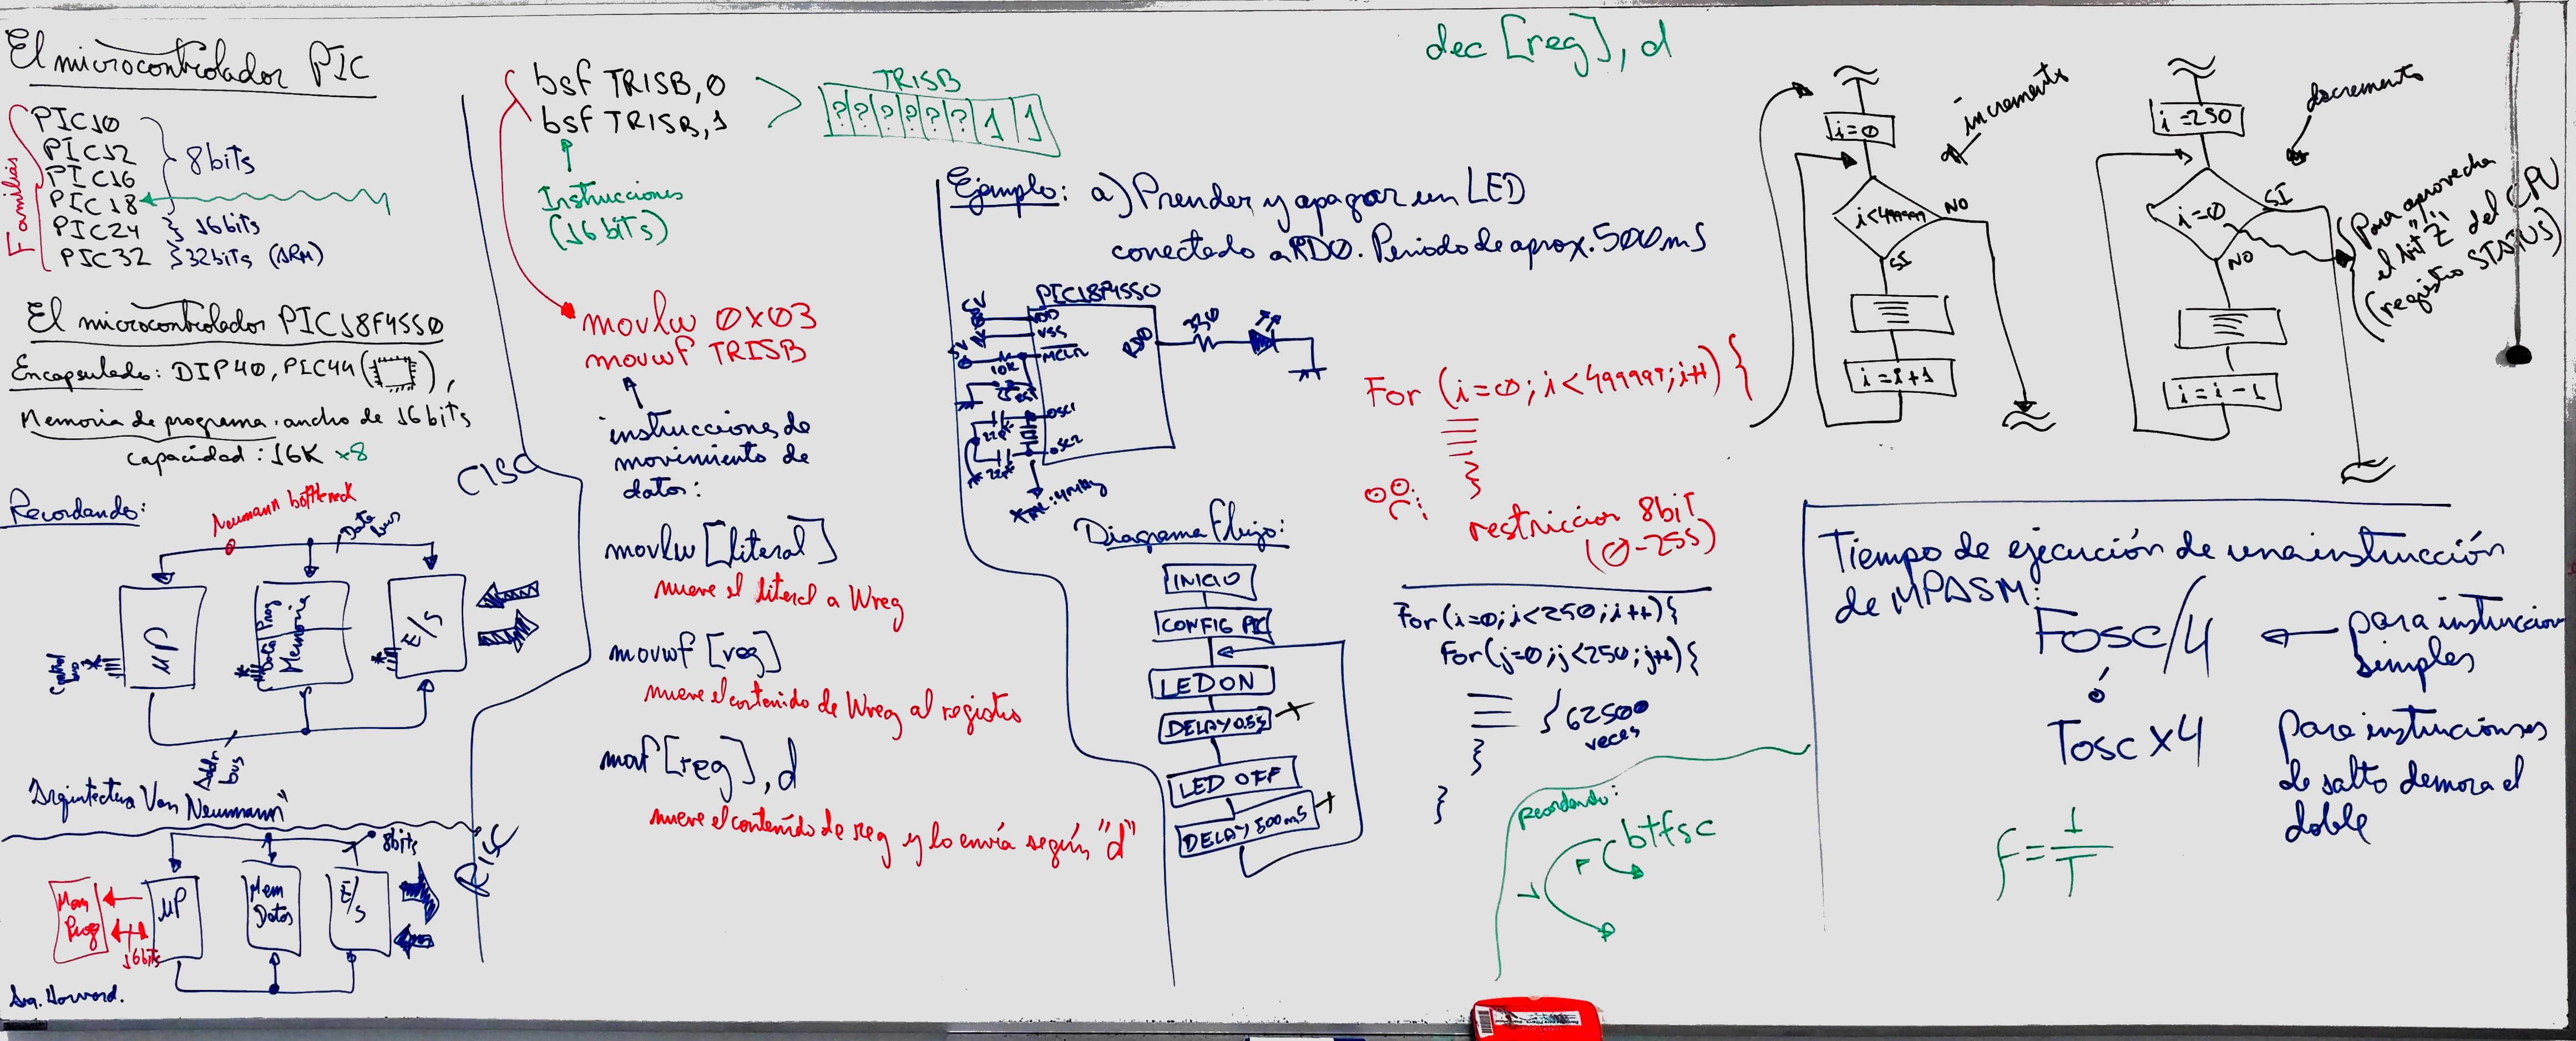 El microcontrolador PIC
Familias
PIC10
PIC12
PIC16
PIC18
8bits
PIC24 } 16bits
PIC32 } 32bits (ARM)
El microcontrolador PIC18F4550
Encapsulado: DIP40, PIC44 ( ),
Memoria de programa: ancho de 16bits
capacidad: 16K x8
Recordando:
Neumann bottleneck
Data bus
µP
Data Prog
Memoria
E/S
Control Bus
Addr bus
Arquitectura Von Neumann
CISC
RISC
8bits
Mem Prog
16bits
µP
Mem Datos
E/S
Arq. Harvard.
bsf TRISB,0
bsf TRISB,1
TRISB
? ? ? ? ? ? 1 1
Instrucciones
(16bits)
movlw 0X03
movwf TRISB
instrucciones de
movimiento de
datos:
movlw [literal]
mueve el literal a Wreg
movwf [reg]
mueve el contenido de Wreg al registro
movf [reg], d
mueve el contenido de reg y lo envía según "d"
Ejemplo: a) Prender y apagar un LED
conectado a RD0. Periodo de aprox. 500mS
PIC18F4550
5V
VDD
VSS
5V
MCLR
10K
RD0
330
OSC1
OSC2
22pF
22pF
XTAL: 4MHz
Diagrama Flujo:
INICIO
CONFIG PIC
LED ON
DELAY 0.5S
LED OFF
DELAY 500mS
dec [reg], d
For (i=0; i<499999; i++) {
}
restriccion 8bit
(0-255)
For (i=0; i<250; i++) {
For (j=0; j<250; j++) {
} 62500
veces
}
}
Recordando:
btfsc
F
V
i=0
incremento
i<499999
NO
SI
i=i+1
i=250
decremento
i=0
SI
NO
i=i-1
Para aprovecha
el bit "Z" del CPU
(registro STATUS)
Tiempo de ejecución de una instrucción
de MPASM:
Fosc/4
para instruccion
simples
ó
Tosc x4
para instrucciones
de salto demora el
doble
f = 1/T